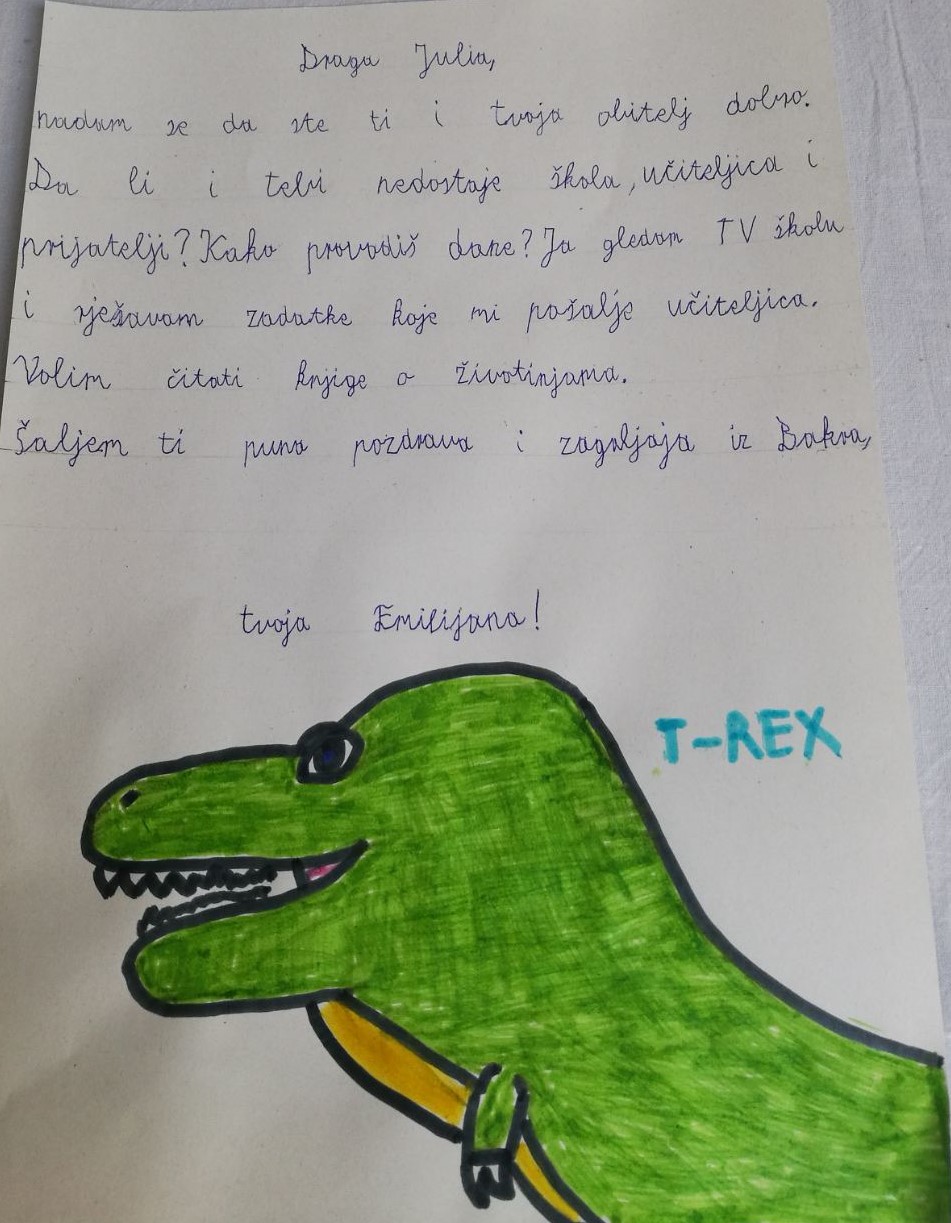 Draga Julia,
nadam se da ste ti i tvoja obitelj dobro.
Da li i tebi nedostaje škola, učiteljica i
prijatelji? Kako provodiš dane? Ja gledam TV školu
i rješavam zadatke koje mi pošalje učiteljica.
Volim čitati knjige o životinjama.
Šaljem ti puno pozdrava i zagrljaja iz Bakra,
tvoja Emilijana!
T-REX